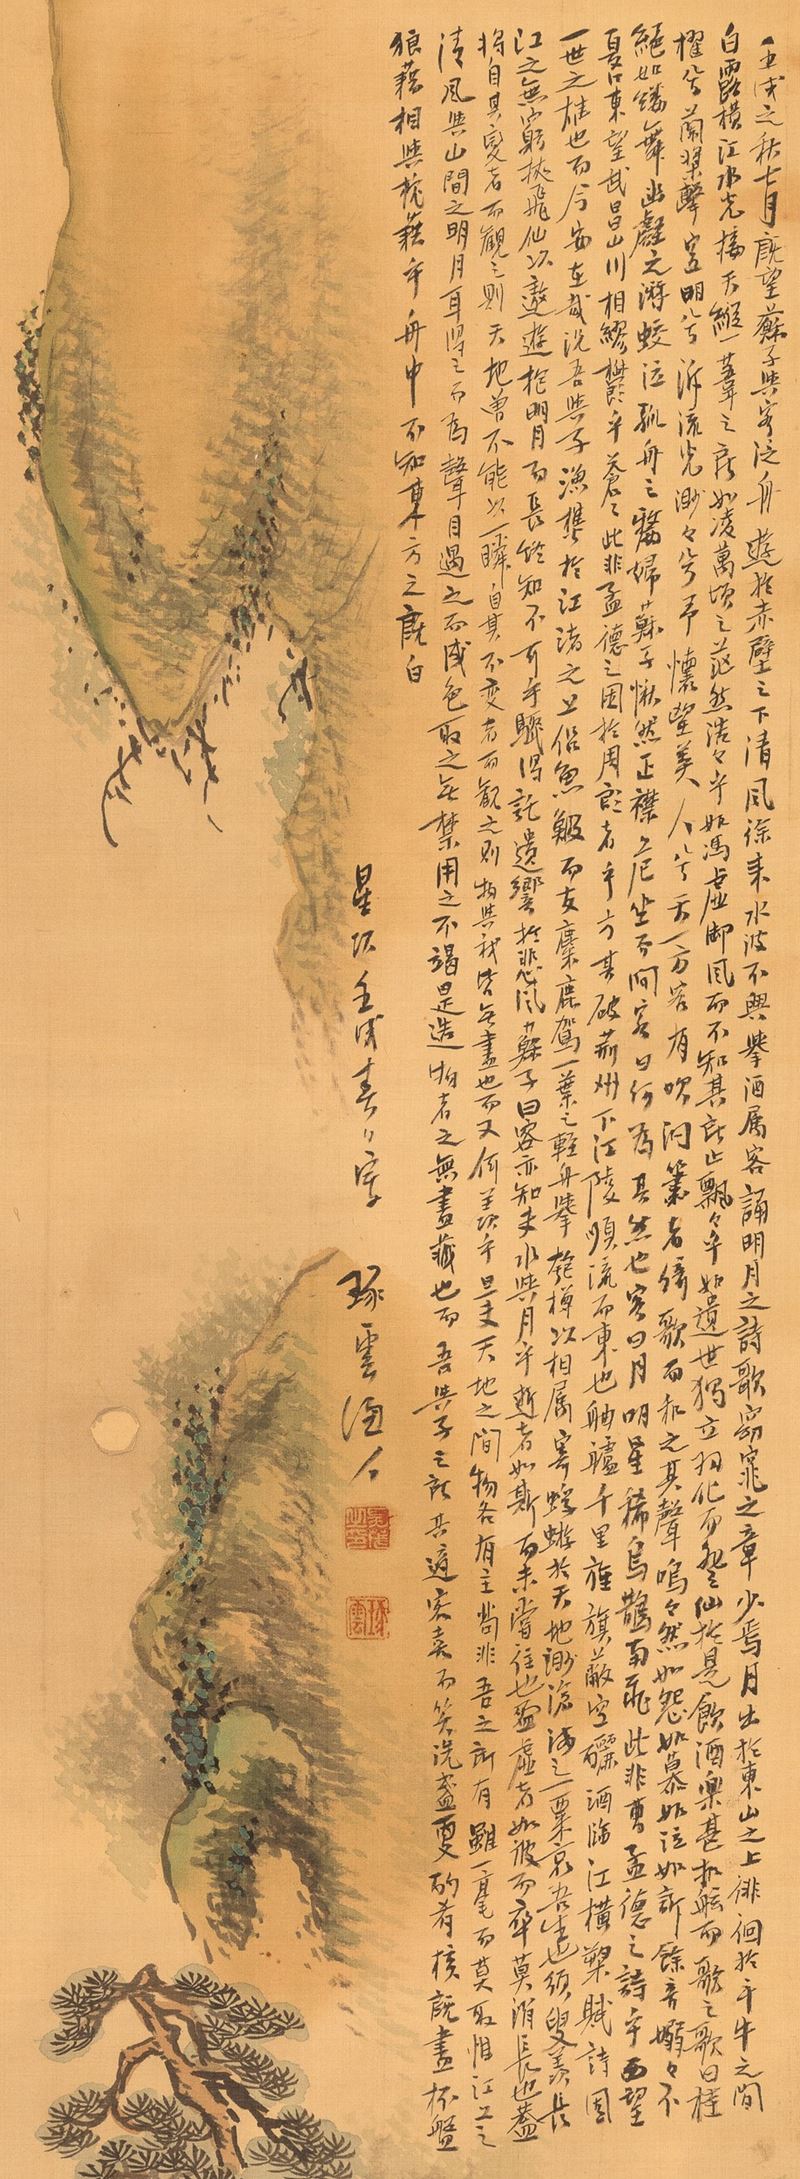 壬戌之秋七月既望蘇子與客泛舟遊於赤壁之下清風徐來水波不興舉酒属客誦明月之詩歌窈窕之章少焉月出於東山之上徘徊於斗牛之間
白露橫江水光接天縱一葦之所如凌萬頃之茫然浩々乎如馮虛御風而不知其所止飄々乎如遺世獨立羽化而登仙於是飲酒樂甚扣舷而歌之歌曰桂
櫂兮蘭槳擊空明兮泝流光渺々兮予懷望美人兮天一方客有吹洞簫者倚歌而和之其聲嗚々然如怨如慕如泣如訴餘音嫋々不
絕如縷舞幽壑之潛蛟泣孤舟之嫠婦蘇子愀然正襟危坐而問客曰何為其然也客曰月明星稀烏鵲南飛此非曹孟德之詩乎西望
夏口東望武昌山川相繆鬱乎蒼々此非孟德之困於周郎者乎方其破荊州下江陵順流而東也舳艫千里旌旗蔽空釃酒臨江橫槊賦詩固
一世之雄也而今安在哉況吾與子漁樵於江渚之上侶魚鰕而友麋鹿駕一葉之輕舟舉匏樽以相属寄蜉蝣於天地渺滄海之一粟哀吾生也須臾羨長
江之無窮挾飛仙以遨遊抱明月而長終知不可乎驟得託遺響於悲風蘇子曰客亦知夫水與月乎逝者如斯而未嘗往也盈虛者如彼而卒莫消長也蓋
將自其變者而觀之則天地曾不能以一瞬自其不變者而觀之則物與我皆無盡也而又何羨乎且夫天地之間物各有主苟非吾之所有雖一毫而莫取惟江上之
清風與山間之明月耳得之而為聲目遇之而成色取之無禁用之不竭是造物者之無盡藏也而吾與子之所共適客喜而笑洗盞更酌肴核既盡杯盤
狼藉相與枕藉乎舟中不知東方之既白
星次壬戌春日 琢雲 人
琢雲